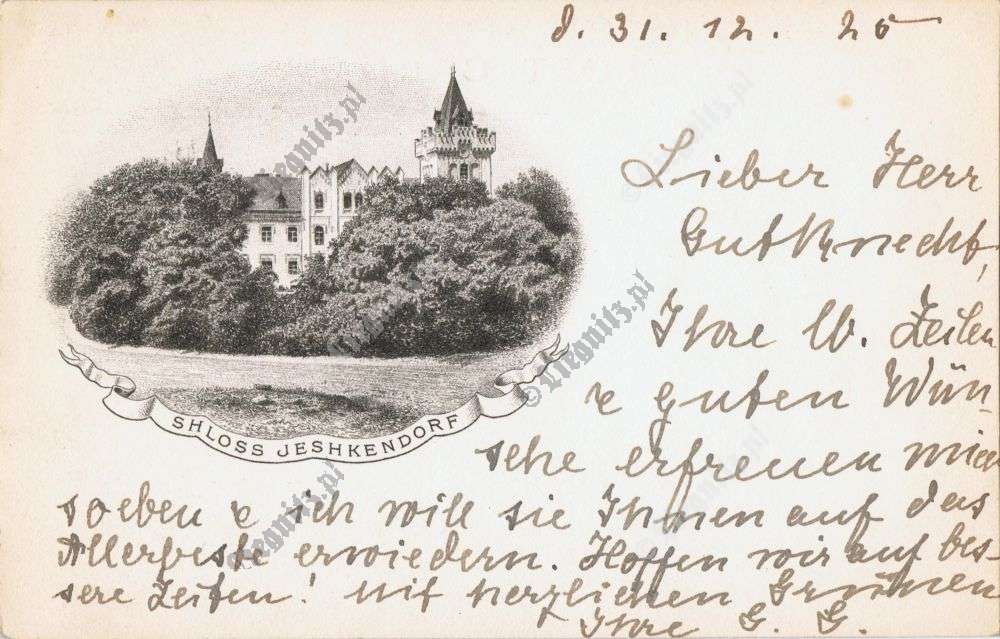 d. 31. 12. 25
Lieber Herr
Gutknecht,
Ihre lb. Zeilen
& guten Wün-
sche erfreuen mich
soeben & ich will sie Ihnen auf das
Allerbeste erwiedern. Hoffen wir auf bes-
sere Zeiten! Mit herzlichen Grüssen
Ihre G. G.
SHLOSS JESHKENDORF
© Liegnitz.pl